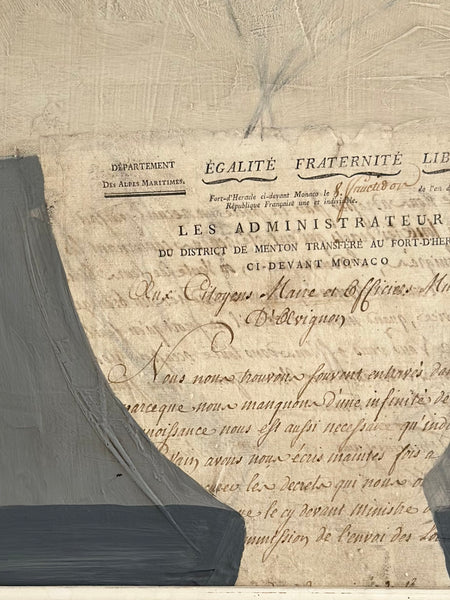 DÉPARTEMENT
DES ALPES MARITIMES.
ÉGALITÉ FRATERNITÉ LIB
Fort-d'Hercule ci-devant Monaco le 8. fructidor de l'an d
République Française une et indivisible.
LES ADMINISTRATEUR
DU DISTRICT DE MENTON TRANSFÉRÉ AU FORT-D'HER
CI-DEVANT MONACO
Aux Citoyens Maire et Officiers Mu
D'Avignon
Nous nous trouvons souvent entravés dan
parceque nous manquons d'une infinité de
noissance nous est aussi necessai qu'ind
avons nous écris maintes fois a
les decrets qui nous
le cy devant Ministre
mmission de l'envoi des Lo